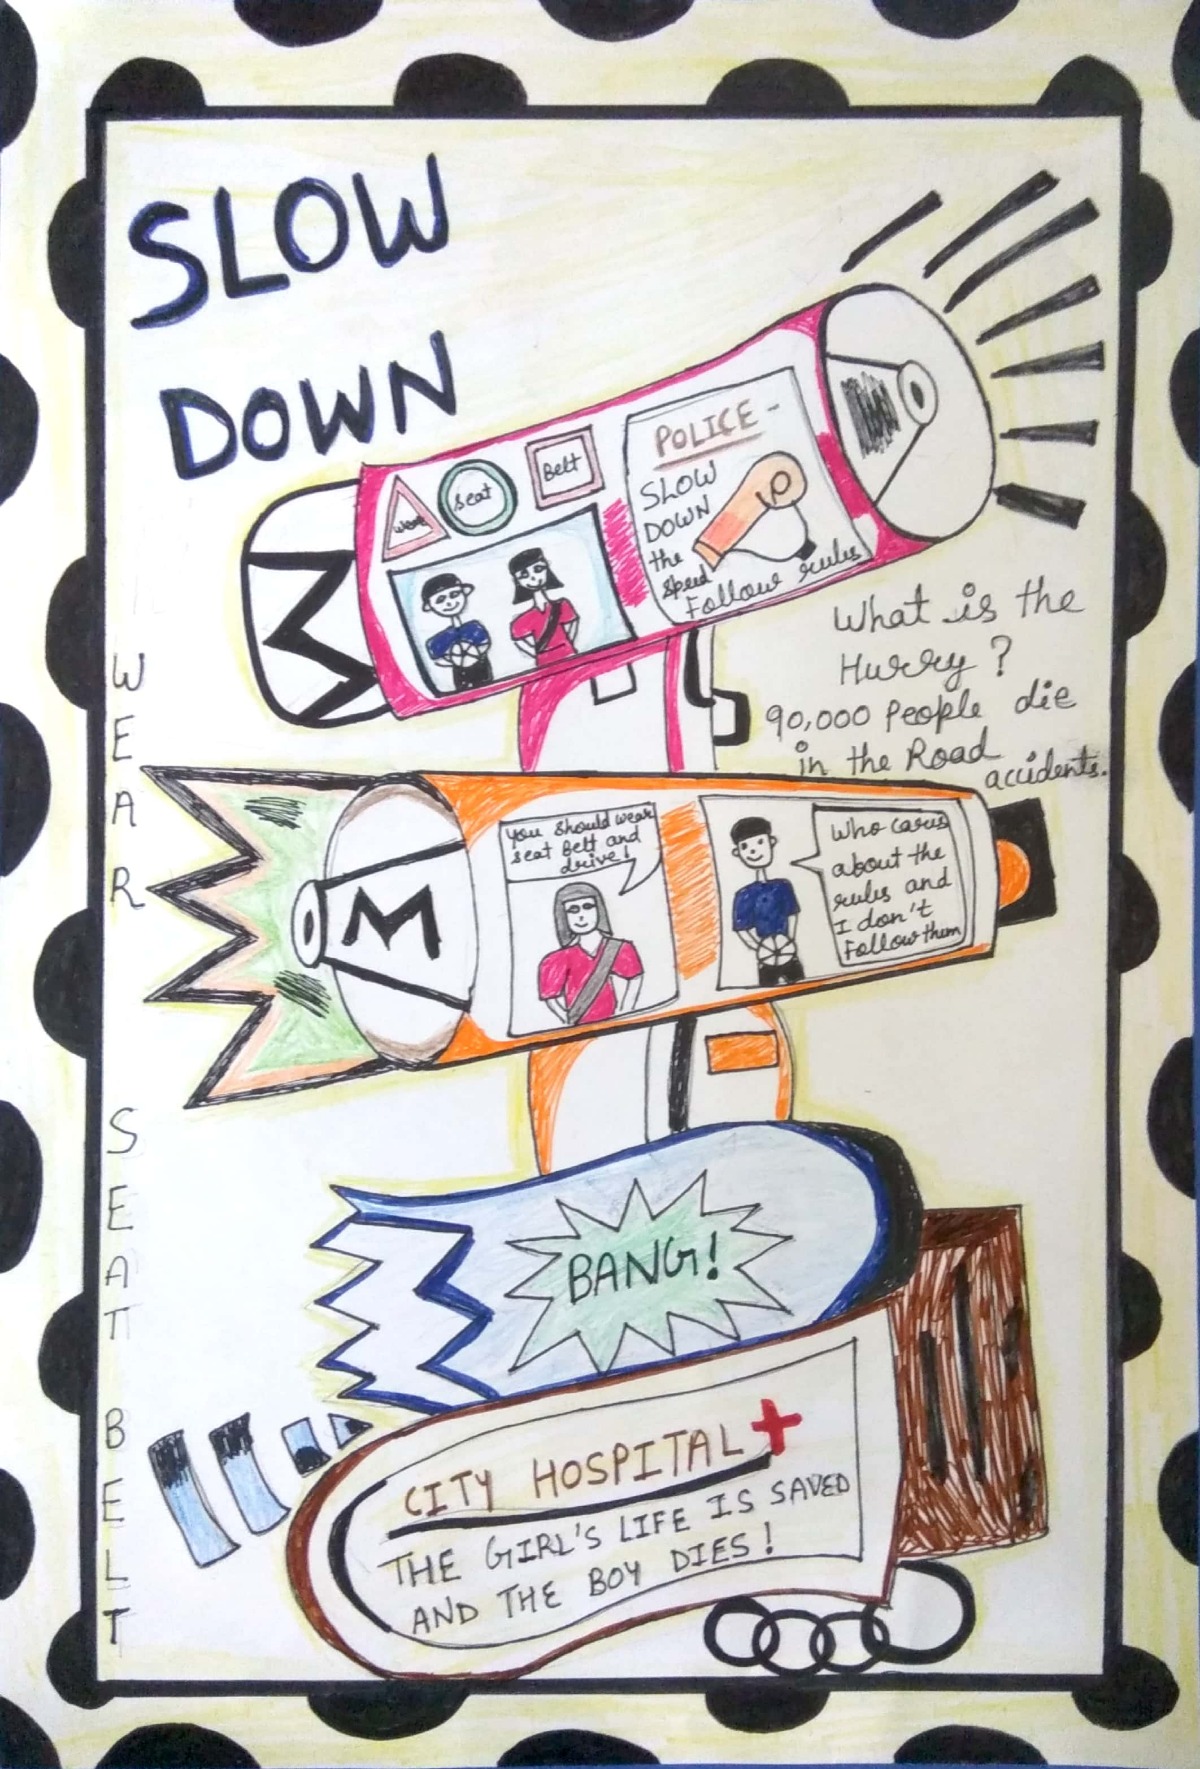 SLOW
DOWN
Wear
Seat
Belt
POLICE -
SLOW
DOWN
the
speed
Follow rules
What is the
Hurry ?
90,000 People die
in the Road
accidents.
WEAR SEAT BELT
M
You should wear
seat Belt and
drive!
Who cares
about the
rules and
I don't
Follow them
BANG!
CITY HOSPITAL
THE GIRL'S LIFE IS SAVED
AND THE BOY DIES!